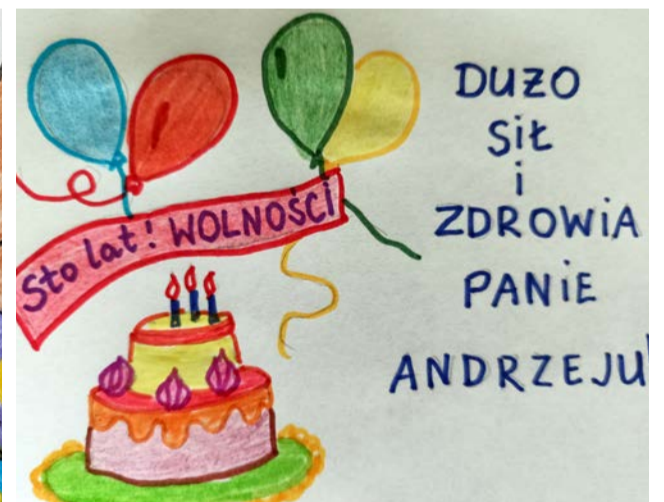 Sto lat! WOLNOŚCI
DUŻO
SIŁ
i
ZDROWiA
PANiE
ANDRZEJU!